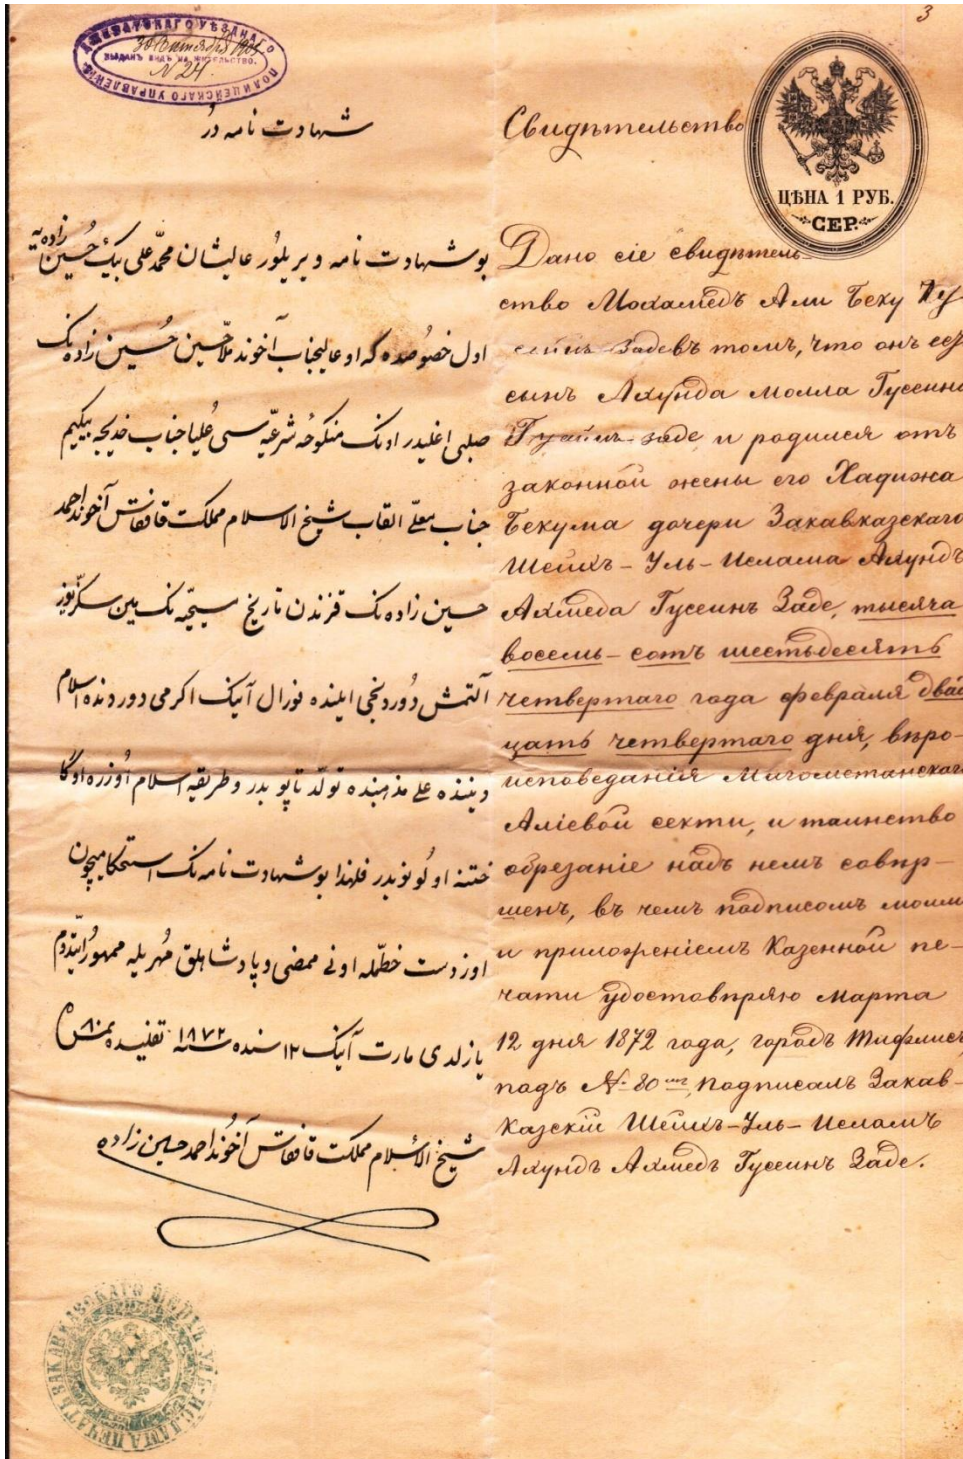 3
ДШЕВАТСКАГО УѢЗДНАГО ПОЛИЦЕЙСКАГО УПРАВЛЕНІЯ
30 Сентября
ВЫДАНЪ ВИДЪ НА ЖИТЕЛЬСТВО.
N 24.
ЦѢНА 1 РУБ.
СЕР.
شهادت نامه دُر
بو شهادت نامه ویریلوُر عالیشان محمّد علی بیک حُسین زاده یه
اول خصوُصده که او عالیجناب آخوند ملّا حسین حُسین زاده نک
صلبی اغلیدر اونک منکوحهٔ شرعیّه سی عُلیا جناب خدیجه بیکیم
جناب معلّی القاب شیخ الاسلام مملکت قافقاس آخوند احمد
حسین زاده نک قزندن تاریخ مسیحیّه نک مین سکّز یوز
آلتمش دوُردنجی ایلنده فورال آینک اکرمی دوردنده اسلام
دیننده علی مذهبنده تولّد تاپوبدر و طریقهٔ اسلام اوُزره اوکا
ختنه اولُونوبدر فلهذا بو شهادت نامه نک استحکامیچون
اوز دست خطّمله اونی ممضی و پادشاهلق مُهریله ممهوُر ایتدم
یازلدی مارت آینک ۱۲ سنده سنه ۱۸۷۲ تفلیسده نمره ۸۰
شیخ الاسلام مملکت قافقاس آخوُند احمد حسین زاده
Свидѣтельство
Дано сіе свидѣтель-
ство Мохамедъ Али Беку Гу
сейнъ Задевъ томъ, что онъ есть
сынъ Ахунда Молла Гусеина
Гусейнъ-заде и родился отъ
законной жены его Хадижа
Бекума дочери Закавказскаго
Шейхъ-Уль-Ислама Ахундъ
Ахмеда Гусеинъ Заде, тысяча
восемь-сотъ шестьдесятъ
четвертаго года февраля двад
цать четвертаго дня, вѣро-
исповеданія Магометанскаго
Аліевой секти, и таинство
обрезаніе надъ немъ совѣр-
шенъ, въ чемъ подписомъ моимъ
и приложреніемъ Казенной пе-
чати удостовѣряю Марта
12 дня 1872 года, городъ Тифлисъ
подъ № 80 Подписалъ Закав-
казскій Шейхъ-Уль-Исламъ
Ахундъ Ахмедъ Гусеинъ Заде.
ПЕЧАТЬ ЗАКАВКАЗСКАГО ШЕЙХЪ-УЛЬ-ИСЛАМА